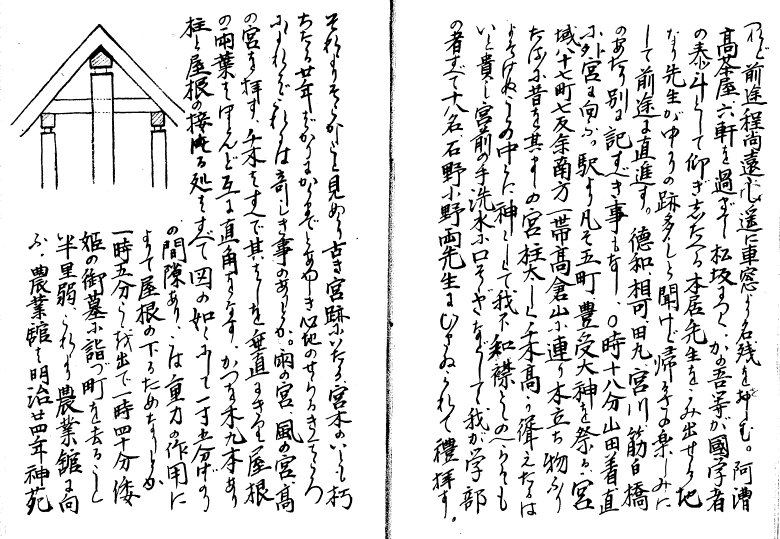 れど前途程尚遠し遥に車窓より名残を惜む。阿漕
高茶屋、六軒を過ぎて松坂につく、かの吾等が國字者
の泰斗として仰ぎしたへる本居先生をうみ出せる地
なり先生がゆかりの跡多しと聞けど帰るさの楽しみに
して前途に直進す。德和、相可、田九、宮川、筋向橋
のあたり別に記すべき事もなし、〇時十八分山田着直
に外宮に向ふ。駅より凡そ五町、豊受大神を祭る、宮
域八十七町七反余南方一帯高倉山に連り木立ち物ふり
たるに昔を其まゝの宮柱太しく千木高く聳えたるは
よそけぬ心の中に神として我不知襟を
いと貴し宮前の手洗水に口そゝぎなどして我が学部
の者すべて十八名石野小野両先生にひきゐられて禮拝す。
それより見めぐり古き宮跡にいたる、宮木のいと朽
ちたる廿年ばかり
これは奇しき事のありとか。雨の宮、風の宮、高
の宮を拝す、千木はすべて其はしを垂直にきり屋根
の両葉をはさんど互に直角をなす、かつを木九本あり
柱と屋根の接する処はすべて図の如くにして一寸五分ばかり
の間隙あり、こは重力の作用に
よて屋根の下るためなりとか
一時五分こゝを出で一時四十分倭
姫の御墓に詣づ町を去ること
半里弱、これより農業舘に向
ふ、農業舘は明治廿四年神苑